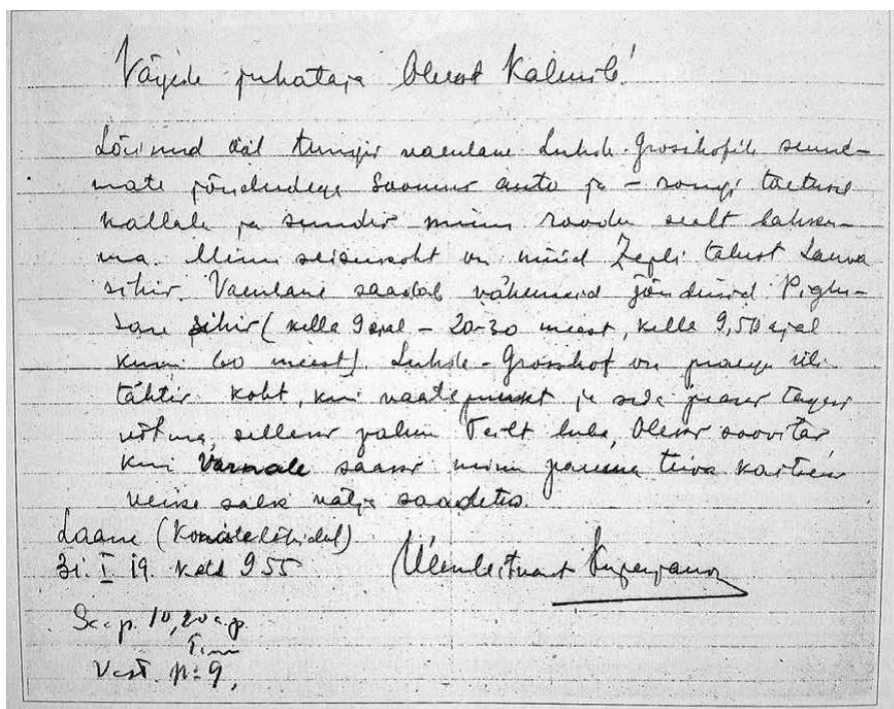 Vägede juhataja Olevat Kalmile!
Läinud ööl tungis vaenlane Luhde-Grosshofile suure-
mate jõududega Soomus auto ja - rongi toetusel
kallale ja sundis minu roodu sealt lahku-
ma. Minu seisukoht on nüüd Zepli talust Laane
sihis. Vaenlane saadab vähemaid jõudusid
sihis (kella 9 ajal - 20-30 meest, kella 9,50 ajal
kuni 60 meest). Luhde-Grosshof on praegu üli-
tähtis koht, kui vaatepunkt ja seda peaks tagasi
võtma, selleks palun Teilt luba, oleks soovitav
kui saaks minu parema tiiva
väike salk välja saadetud.
Laane (
31. I 19. kell 9 55 Ülemleitnant Kuperjanov
10,20
9.